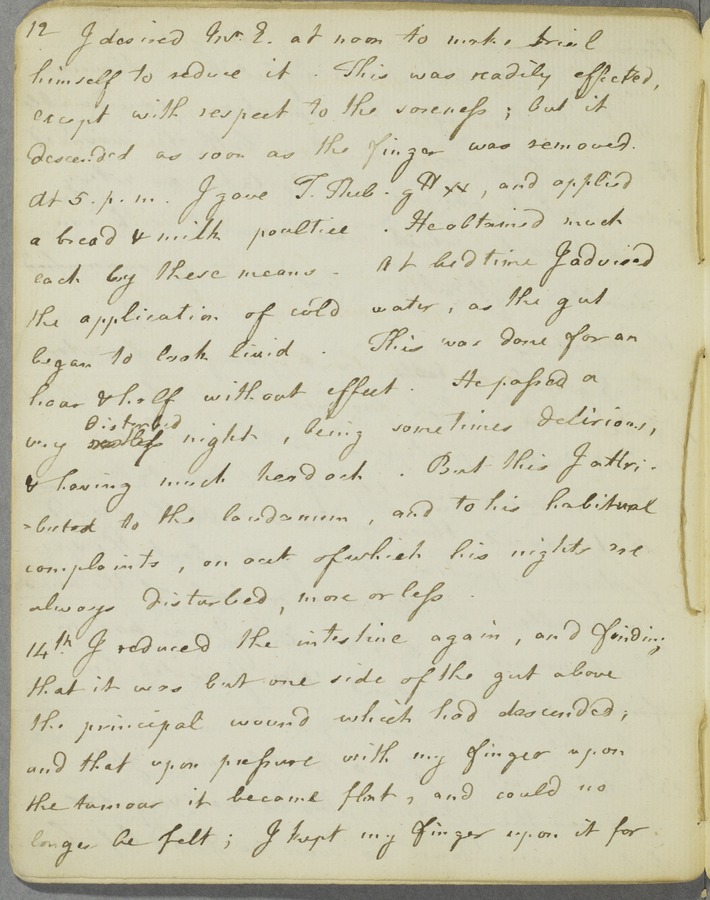 12 I desired Mr. E. at noon to make trial
himself to reduce it. This was readily effected,
except with respect to the soreness; but it
descended as soon as the finger was removed.
At 5. p. m. I gave T. Theb. gtt xx, and applied
a bread & milk poultice. He obtained much
each by these means. At bedtime I advised
the application of cold water, as the gut
began to look livid. This was done for an
hour & half without effect. He passed a
very disturbed night, being sometimes delirious,
& having much headach. But this I attri-
-buted to the laudanum, and to his habitual
complaints, on acct of which his nights are
always disturbed, more or less.
14th I reduced the intestine again, and finding
that it was but one side of the gut above
the principal wound which had descended;
and that upon pressure with my finger upon
the tumour it became flat, and could no
longer be felt; I kept my finger upon it for